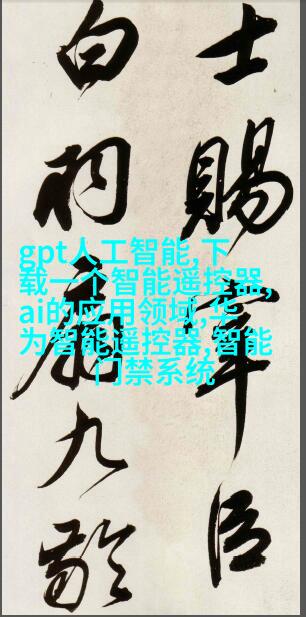 士賜宰臣
白羽扇九齡
gpt人工智能,下
载一个智能遥控器,
ai的应用领域,华
为智能遥控器,智能
门禁系统